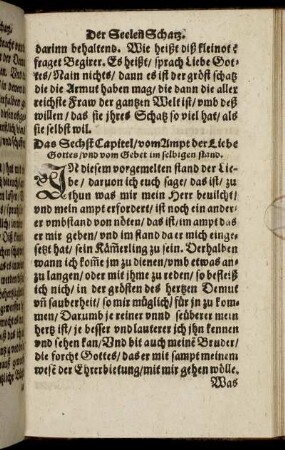 Der Seelen Schatz.
darinn behaltend. Wie heißt diß kleinot ?
fraget Begirer. Es heißt / sprach Liebe Got-
tes / Nain nichts / dann es ist der gröst schatz
die die Armut haben mag / die dann die aller
reichste Fraw der gantzen Welt ist / vmb deß
willen / das sie jhres Schatz so viel hat / als
sie selbst wil.
Das Sechst Capitel / vom Ampt der Liebe
Gottes / vnd vom Gebet im selbigen stand.
IN diesem vorgemelten stand der Lie-
be / daruon ich euch sage / das ist / zu
thun was mir mein Herr beuilcht /
vnd mein ampt erfordert / ist noch ein ander-
er vmbstand von nöten / das ist / im ampt das
er mir geben / vnd im stand da er mich einge-
setzt hat / sein Kam̃erling zu sein. Derhalben
wann ich kom̃e jm zu dienen / vmb etwas an-
zu langen / oder mit jhme zu reden / so befleiß
ich mich / in der grösten des hertzen Demut
vñ sauberheit / so mir müglich / für jn zu kom-
men / Darumb je reiner vnnd seüberer mein
hertz ist / je besser vnd lauterer ich jhn kennen
vnd sehen kan / Vnd bit auch meinẽ Bruder /
die forcht Gottes / das er mit sampt meinem
wesẽ der Ehrerbietung / mit mir gehen wölle.
Was